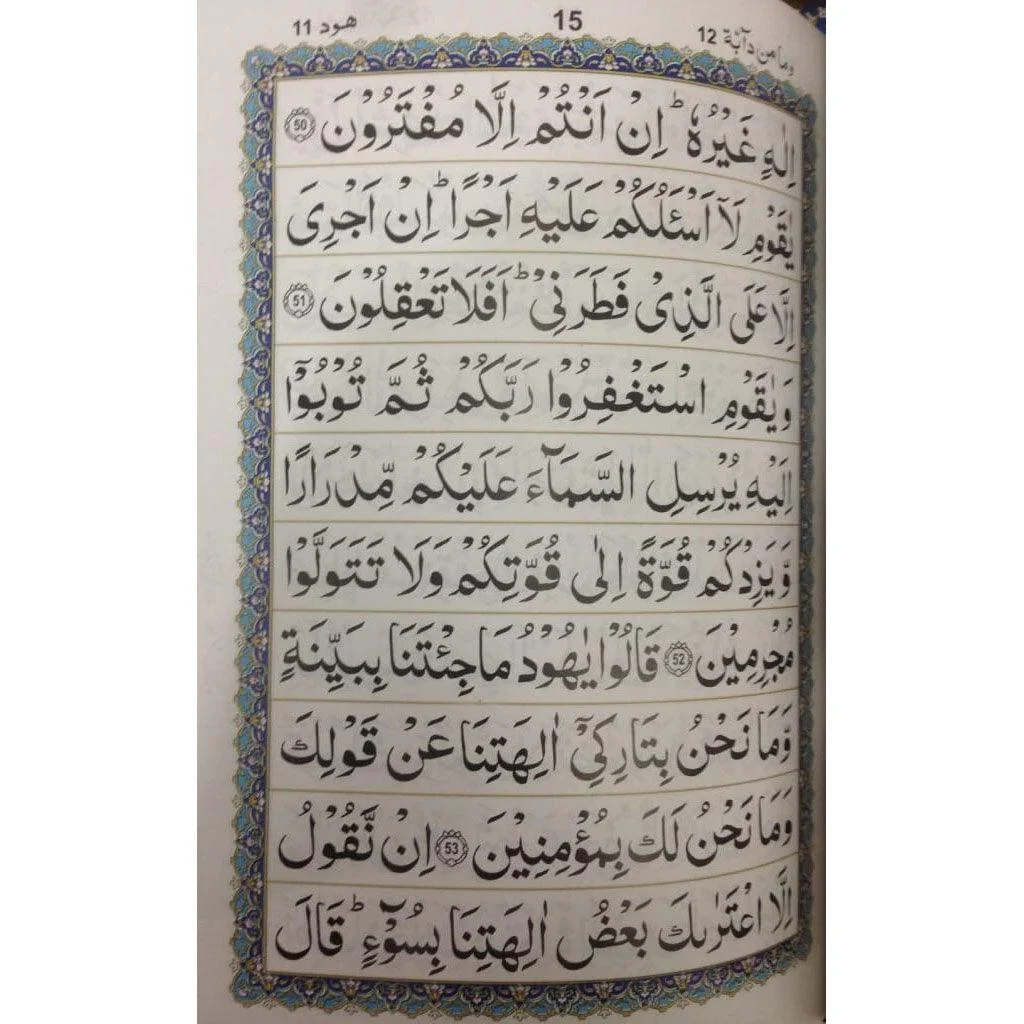 وما من دآبة 12 15 هود 11
اِلٰهٍ غَيْرُهٗ ؕ اِنْ اَنْتُمْ اِلَّا مُفْتَرُوْنَ 50
يٰقَوْمِ لَاۤ اَسْـَٔلُكُمْ عَلَيْهِ اَجْرًا ؕ اِنْ اَجْرِىَ
اِلَّا عَلَى الَّذِىْ فَطَرَنِىْ ؕ اَفَلَا تَعْقِلُوْنَ 51
وَيٰقَوْمِ اسْتَغْفِرُوْا رَبَّكُمْ ثُمَّ تُوْبُوْۤا
اِلَيْهِ يُرْسِلِ السَّمَآءَ عَلَيْكُمْ مِّدْرَارًا
وَّيَزِدْكُمْ قُوَّةً اِلٰى قُوَّتِكُمْ وَلَا تَتَوَلَّوْا
مُجْرِمِيْنَ 52 قَالُوْا يٰهُوْدُ مَا جِئْتَنَا بِبَيِّنَةٍ
وَّمَا نَحْنُ بِتَارِكِىْۤ اٰلِهَتِنَا عَنْ قَوْلِكَ
وَمَا نَحْنُ لَكَ بِمُؤْمِنِيْنَ 53 اِنْ نَّقُوْلُ
اِلَّا اعْتَرٰٮكَ بَعْضُ اٰلِهَتِنَا بِسُوْٓءٍ ؕ قَالَ